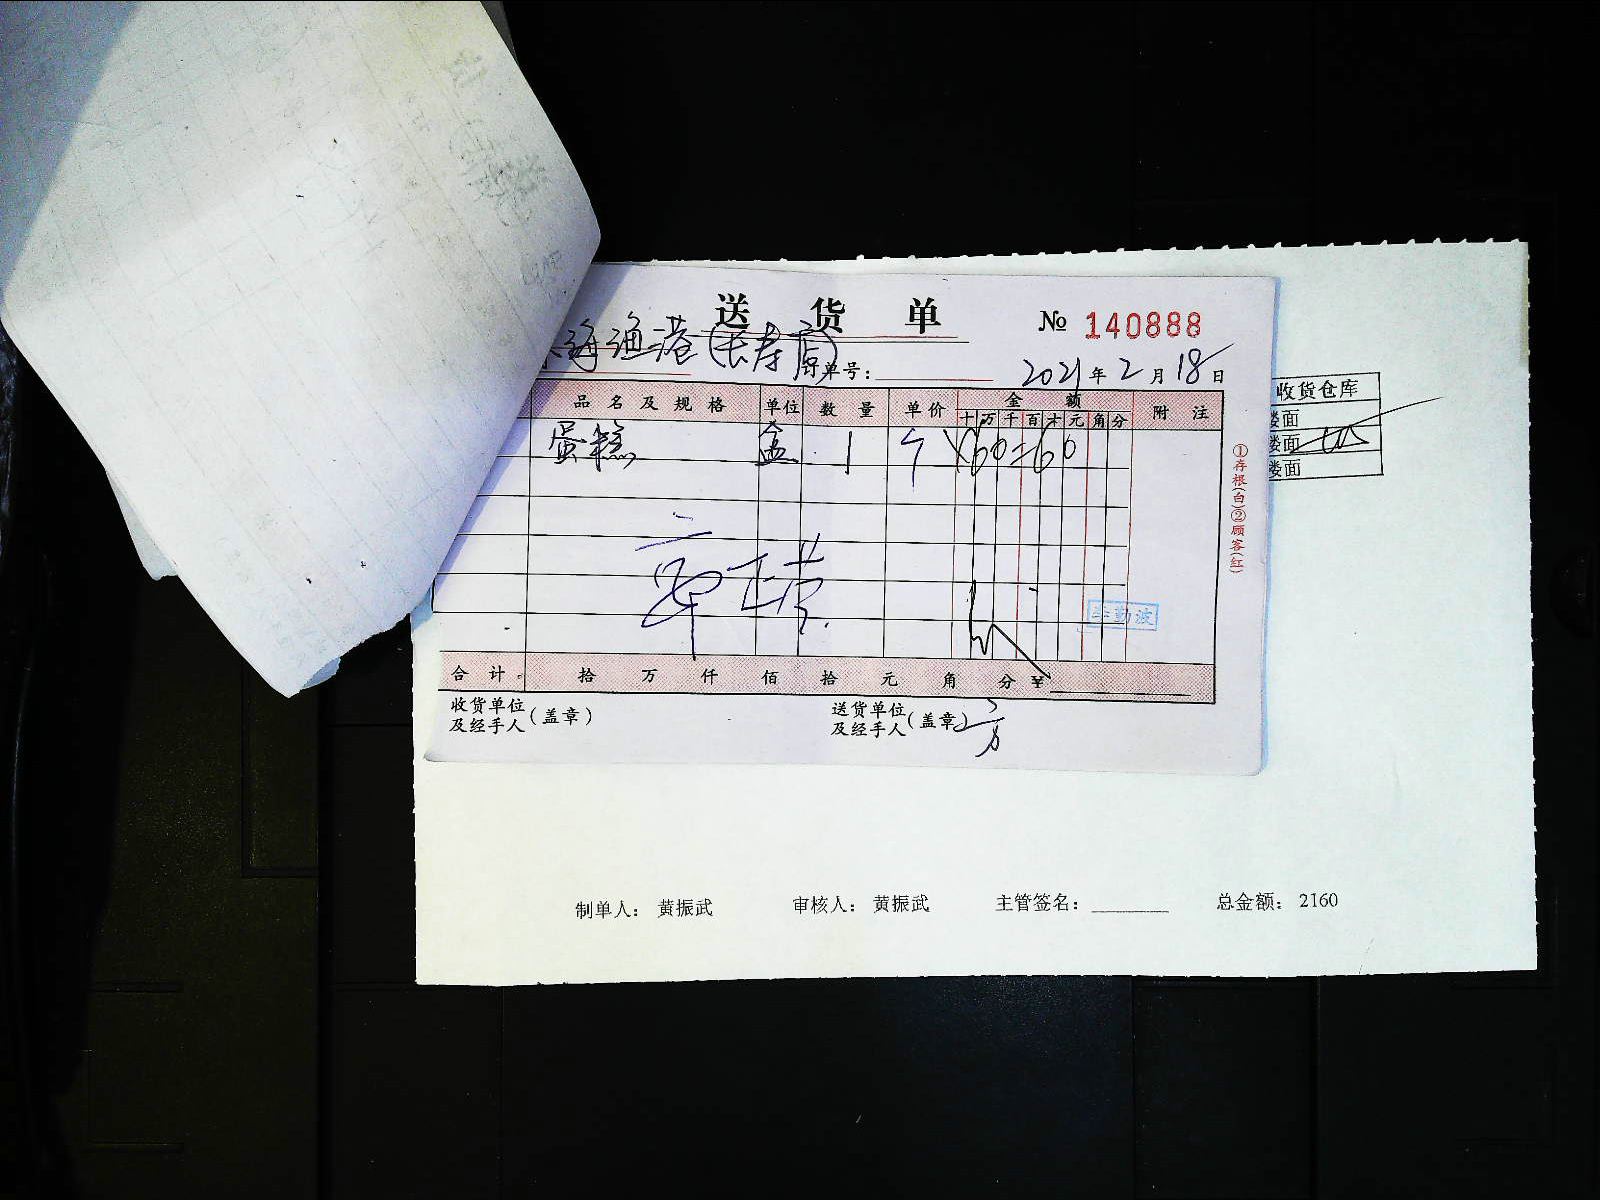 送货单
№ 140888
海渔港(长寿店)
订单号:
2021年2月18日
品名及规格 单位 数量 单价 金额 附注
十 万 千 百 十 元 角 分
蛋糕 盒 1 个 ×60=60
李勤波
合计 拾 万 仟 佰 拾 元 角 分 ¥
收货单位及经手人(盖章)
送货单位及经手人(盖章)
①存根(白)②顾客(红)
收货仓库
楼面
楼面
楼面
制单人: 黄振武 审核人: 黄振武 主管签名: 总金额: 2160